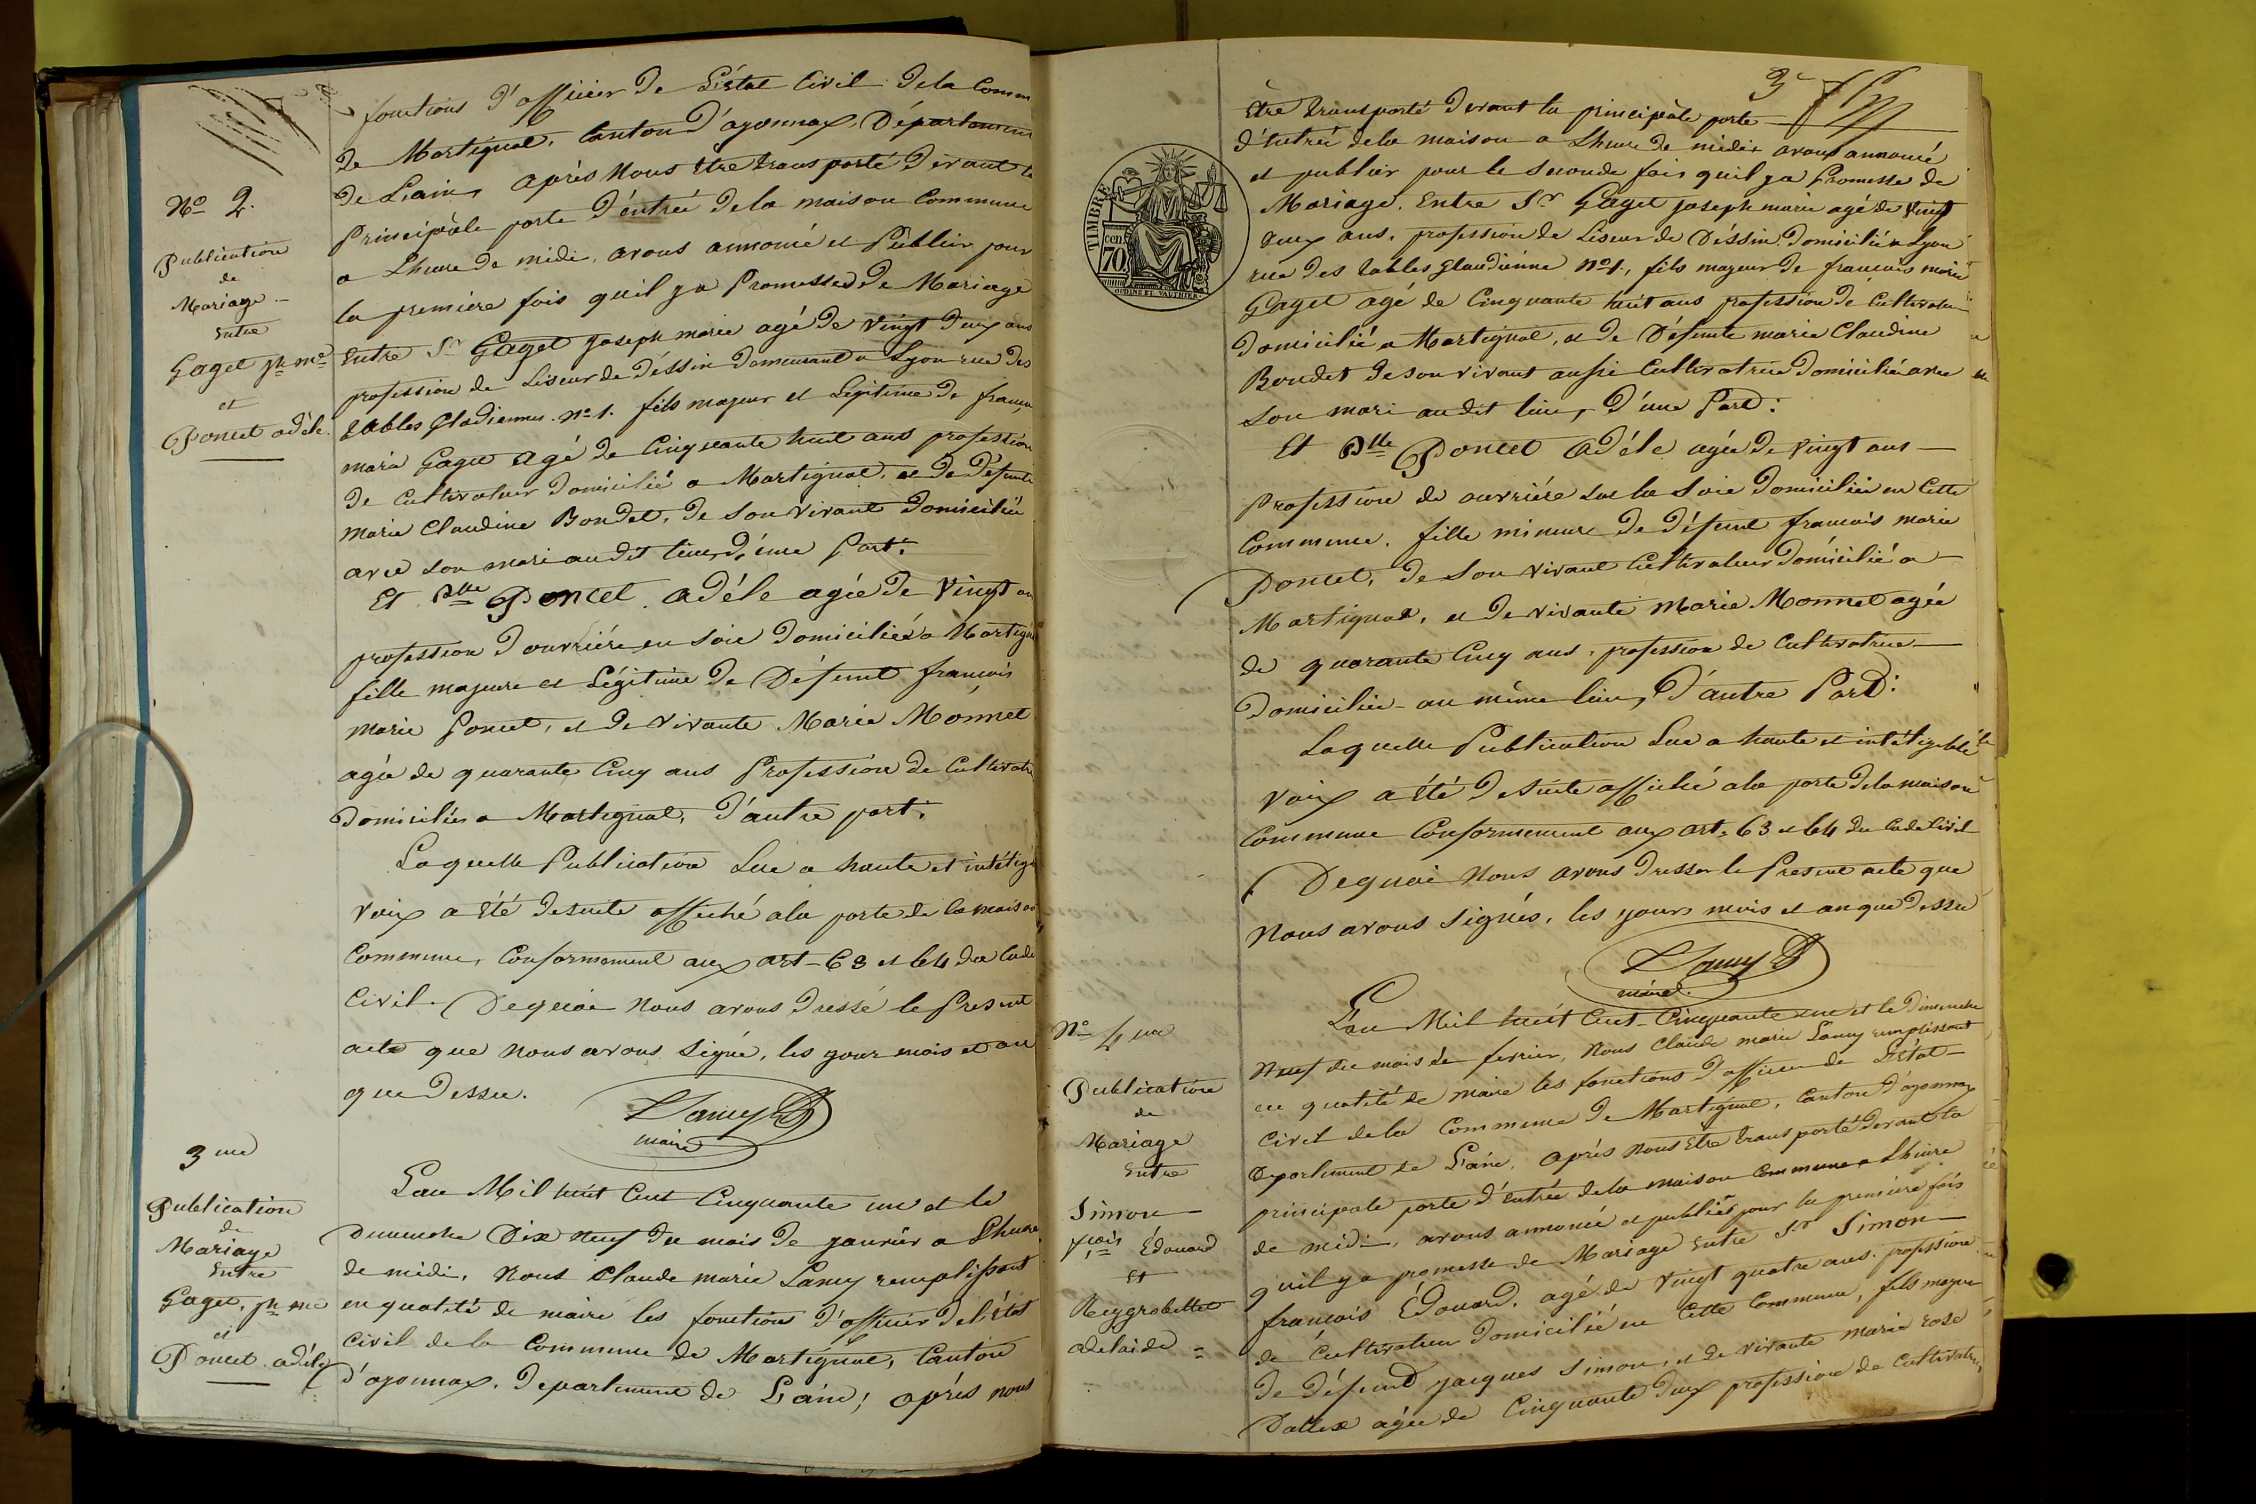 fonctions d'officier de L'état Civil de la Comm
de Martignat, Canton d'ayonnax, Département
de L'ain, après Nous être transporté devant la
Principale porte d'éntrée de la maison Commune
a L'heure de midi, avons annoncé et Publier pour
la premiere fois qu'il ya Promesses de Mariage
Entre Sr Gaget joseph marie agé de vingt deux ans
profession de Liseur de déssin demeurant a Lyon rue des
tables Cladiennes No 1. fils majeur et Légitime de françois
marie Gaget agé de Cinquante huit ans profession
de Cultivateur domicilié a Martignat, et de défunte
marie Claudine Bondet, de son vivant domiciliée
avec son mari audit lieu, d'une Part:
Et Dlle Poncet adéle agée de vingt an
profession d'ouvriére en soie domiciliée a Martignat
fille majeure et Légitime de Défunt françois
marie Poncet, et de vivante Marie Monnet
agée de quarante Cinq ans Profession de Cultivatri
domiciliée a Martignat, d'autre part.
Laquelle Publication Lue a haute et intéligi
voix a été desuite affiché a la porte de la maison
Commune, Conformement aux art. 63 et 64 du Code
Civil. De quoi Nous avons dressé le Present
acte que nous avons signé, les jour mois et an
que dessu.
Lamy
maire
No 2.
Publication
de
Mariage
Entre
Gaget jh me
et
Poncet adéle.
3me
Publication
de
Mariage
Entre
Gaget, jh me
et
Poncet adéle
L'an Mil huit Cent Cinquante un et le
Dimenche Dix neuf du mois de janvier a L'heure
de midi, Nous Claude marie Lamy remplissant
en qualité de maire les fonctions d'officier de l'état
Civil de la Commune de Martignat, Canton
d'ayonnax, departement de L'ain, aprés nous
3e
être transporté devant la principale porte
d'entrée de la maison a L'heure de midi, avons annoncé
et publier pour le seconde fois qu'il ya Promesse de
Mariage. Entre Sr Gaget joseph marie agé de vingt
deux ans, profession de Liseur de Déssin, domicilié a Lyon
rue des tables Glaudienne No 1., fils majeur de francois marie
Gaget agé de Cinquante huit ans profession de Cultivateur
domicilié a Martignat, et de Défunte marie Claudine
Bondet de son vivant aussi Cultivatrice domiciliée avec
son mari audit lieu, d'une Part:
Et Dlle Poncet Adéle agée de vingt ans
Profession de ouvriére sur la soie domiciliée en Cette
Commune. fille mineure de défunt francois marie
Poncet, de son vivant Cultivateur domicilié a
Martignat, et de vivante Marie Monnet agée
de quarante Cinq ans, profession de Cultivatrice
domiciliée au même lieu, d'autre Part:
Laquelle Publication Lue a haute et intéligible
voix a été de suite affiché a la porte de la maison
Commune Conformement aux art. 63 et 64 du Code Civil
De quoi Nous avons dresser le Present acte que
Nous avons signés, les jours mois et an que dessu
Lamy
maire.
TIMBRE
cen.
70
No 4me
Publication
de
Mariage
Entre
Simon
fçois Édouard
Et
Reygrobellet
adelaide
L'an Mil huit Cent Cinquante un et le Dimenche
Neuf du mois de fevrier, Nous Claude marie Lamy remplissant
en qualité de maire les fonctions d'officier de L'état
Civil de la Commune de Martignat, Canton d'ayonnax
Departement de L'ain, aprés Nous être transporté devant la
principale porte d'entrée de la maison Commune a L'heure
de midi, avons annoncé et publiér pour la premiere fois
qu'il ya promesse de Mariage Entre Sr Simon
francois Édouard, agé de vingt quatre ans profession
de Cultivateur domicilié en Cette Commune, fils majeur
de défunt jacques Simon, et de vivante marie rose
agée de Cinquante deux profession de Cultivatrice